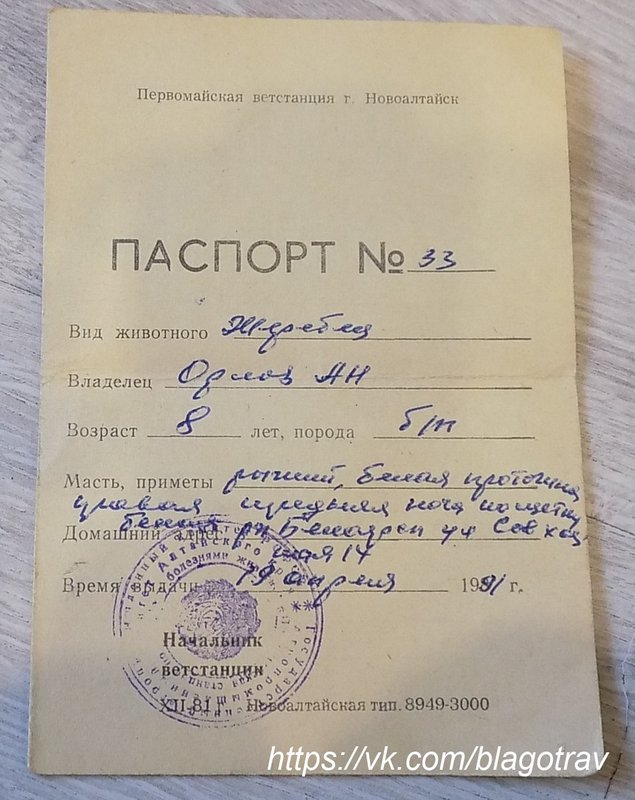 Первомайская ветстанция г. Новоалтайск
ПАСПОРТ № 33
Вид животного Жеребец
Владелец Орлов АН
Возраст 8 лет, порода б/п
Масть, приметы рыжий, белая проточина
правая передняя нога по щетку
белая
Домашний адрес ул Совхоз
ная 14
Время выдачи 19 апреля 1991 г.
Начальник
ветстанции
XII-81 г. Новоалтайская тип. 8949-3000
https://vk.com/blagotrav